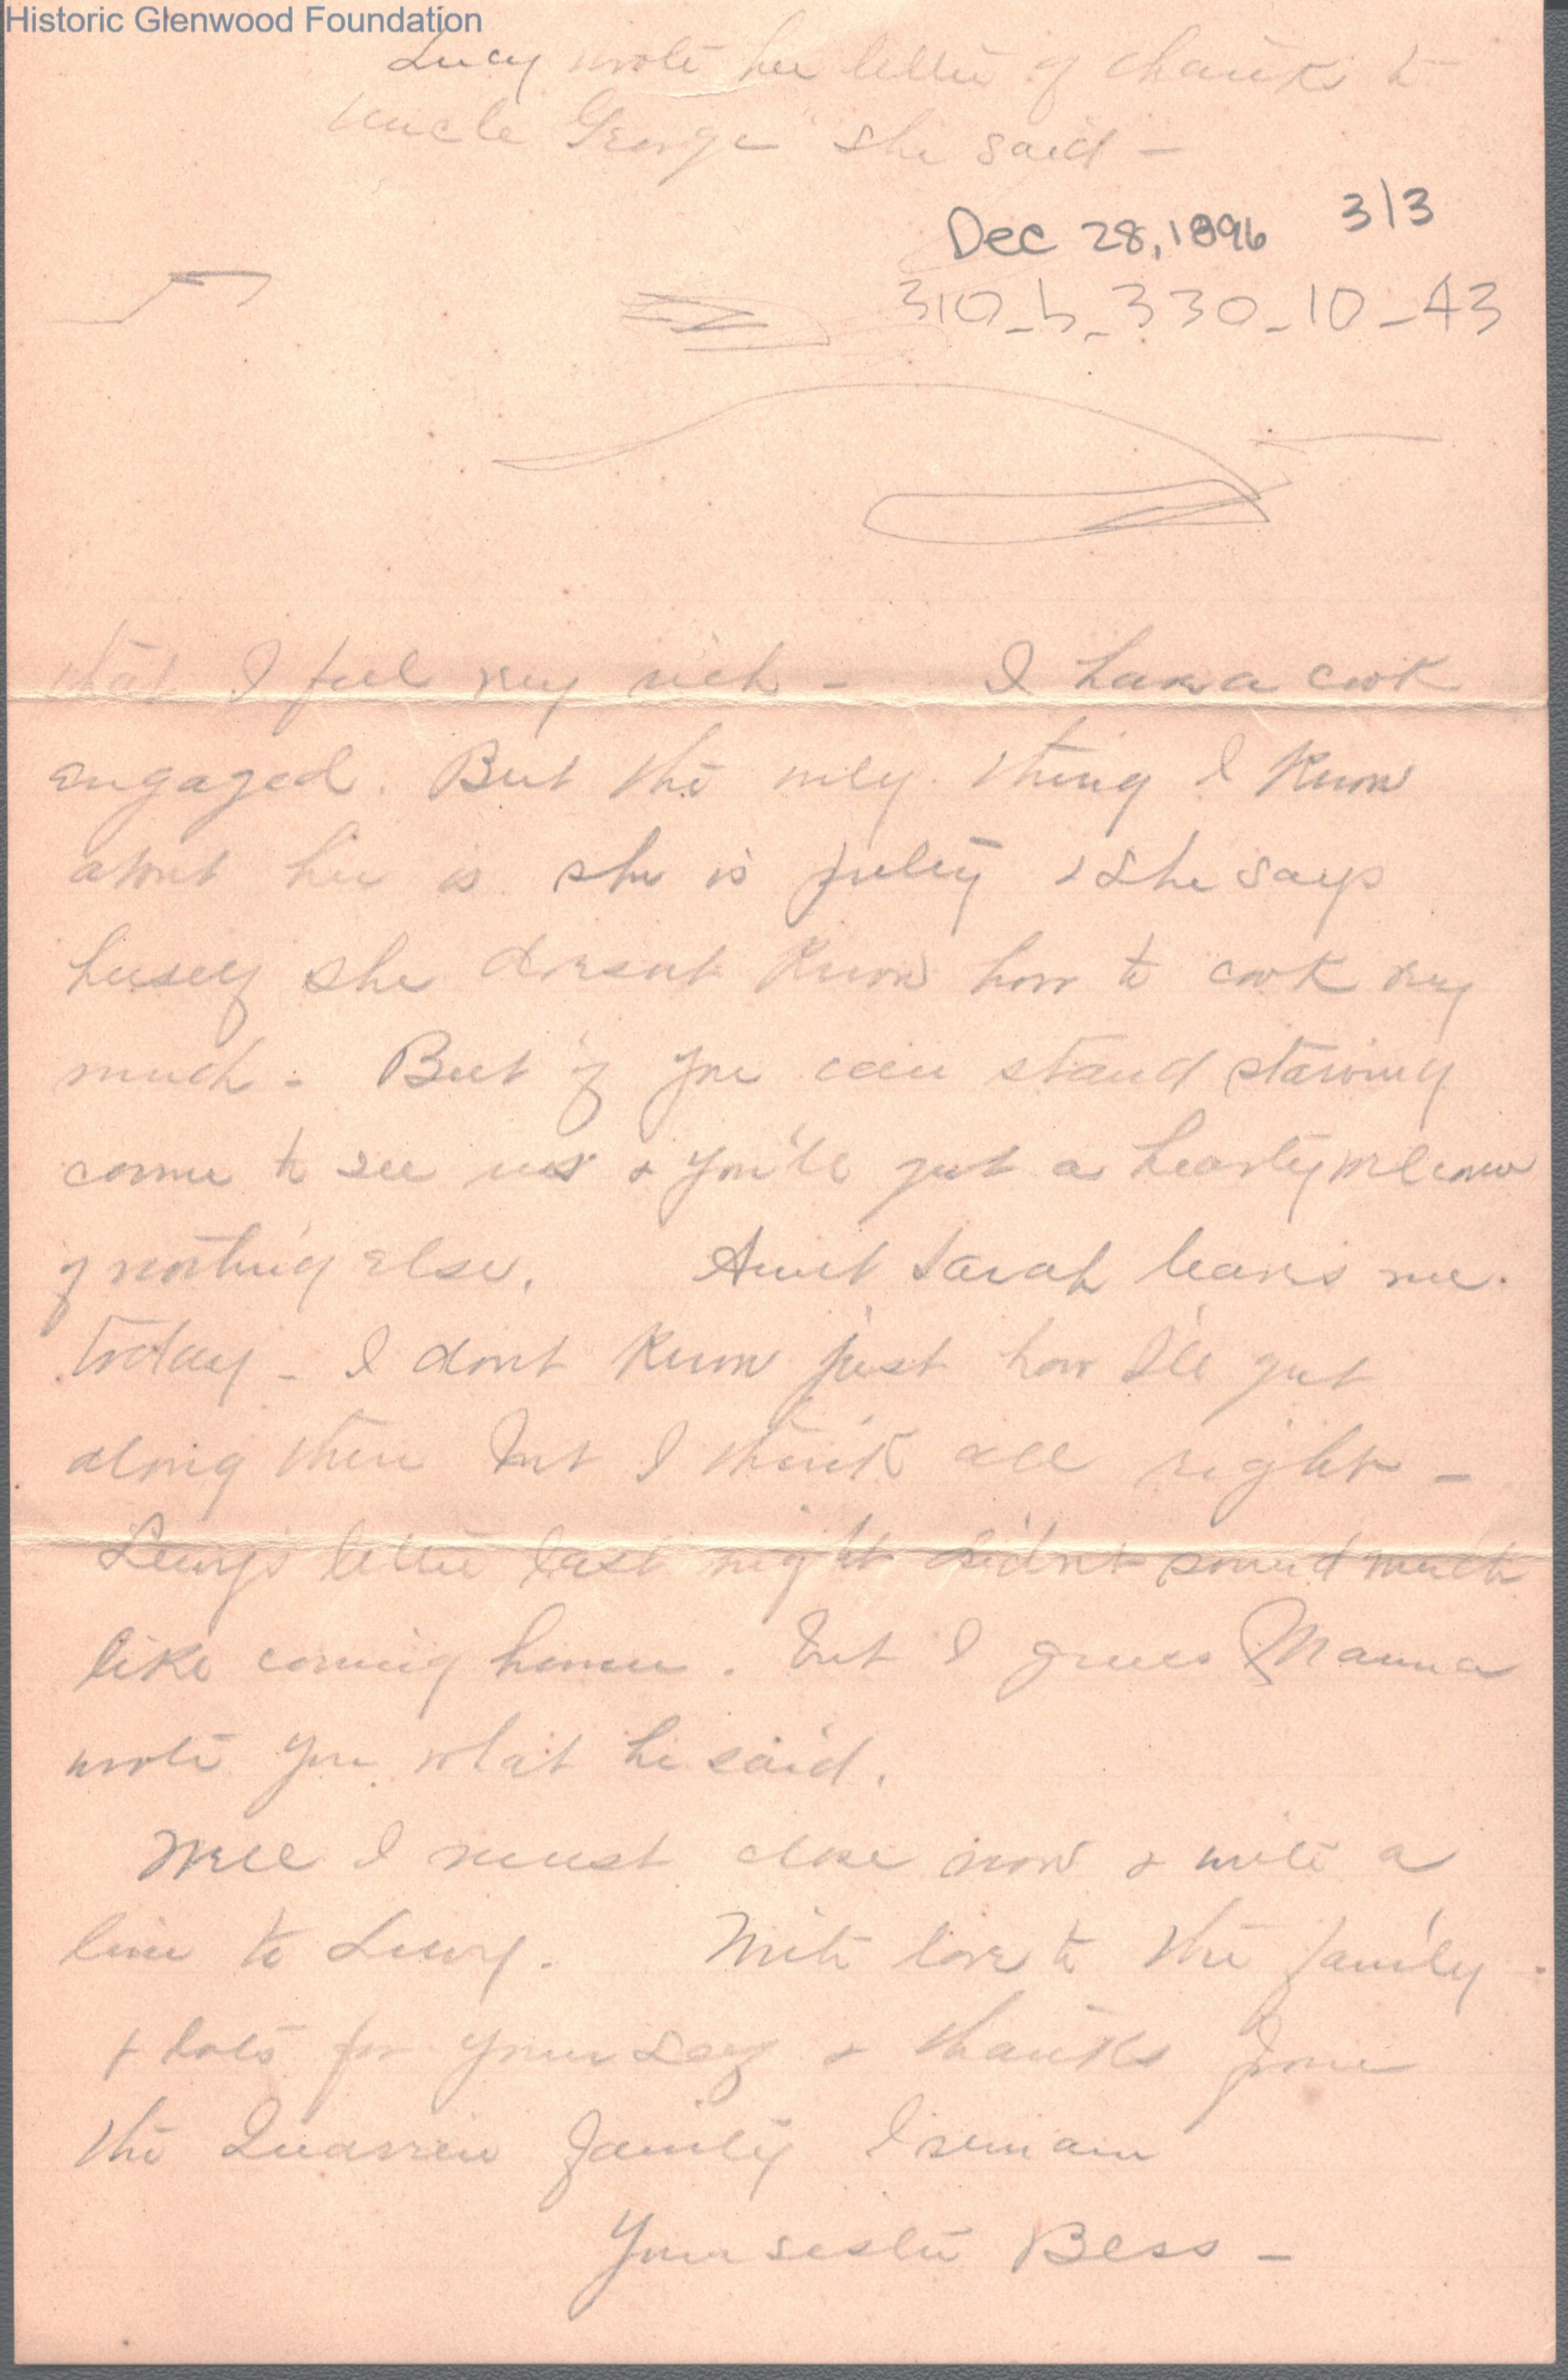 Historic Glenwood Foundation
Lucy wrote her letter of thanks to
Uncle George" she said -
Dec 28, 1896 3/3
310_b_330_10_43
that I feel very rich - I have a cook
engaged. But the only thing I know
about her is she is pretty & she says
herself she doesnt know how to cook very
much - But if you can stand starving
come to see us & you'll get a hearty welcome
if nothing else. Aunt Sarah leaves me
today - I dont know just how I'll get
along then but I think all right -
letter last night didnt sound much
like coming home. But I guess Mamma
wrote you what he said.
Well I must close now & write a
line to With love to the family
& lots for yourself & thanks from
the Quarrier family I remain
Your sister Bess -